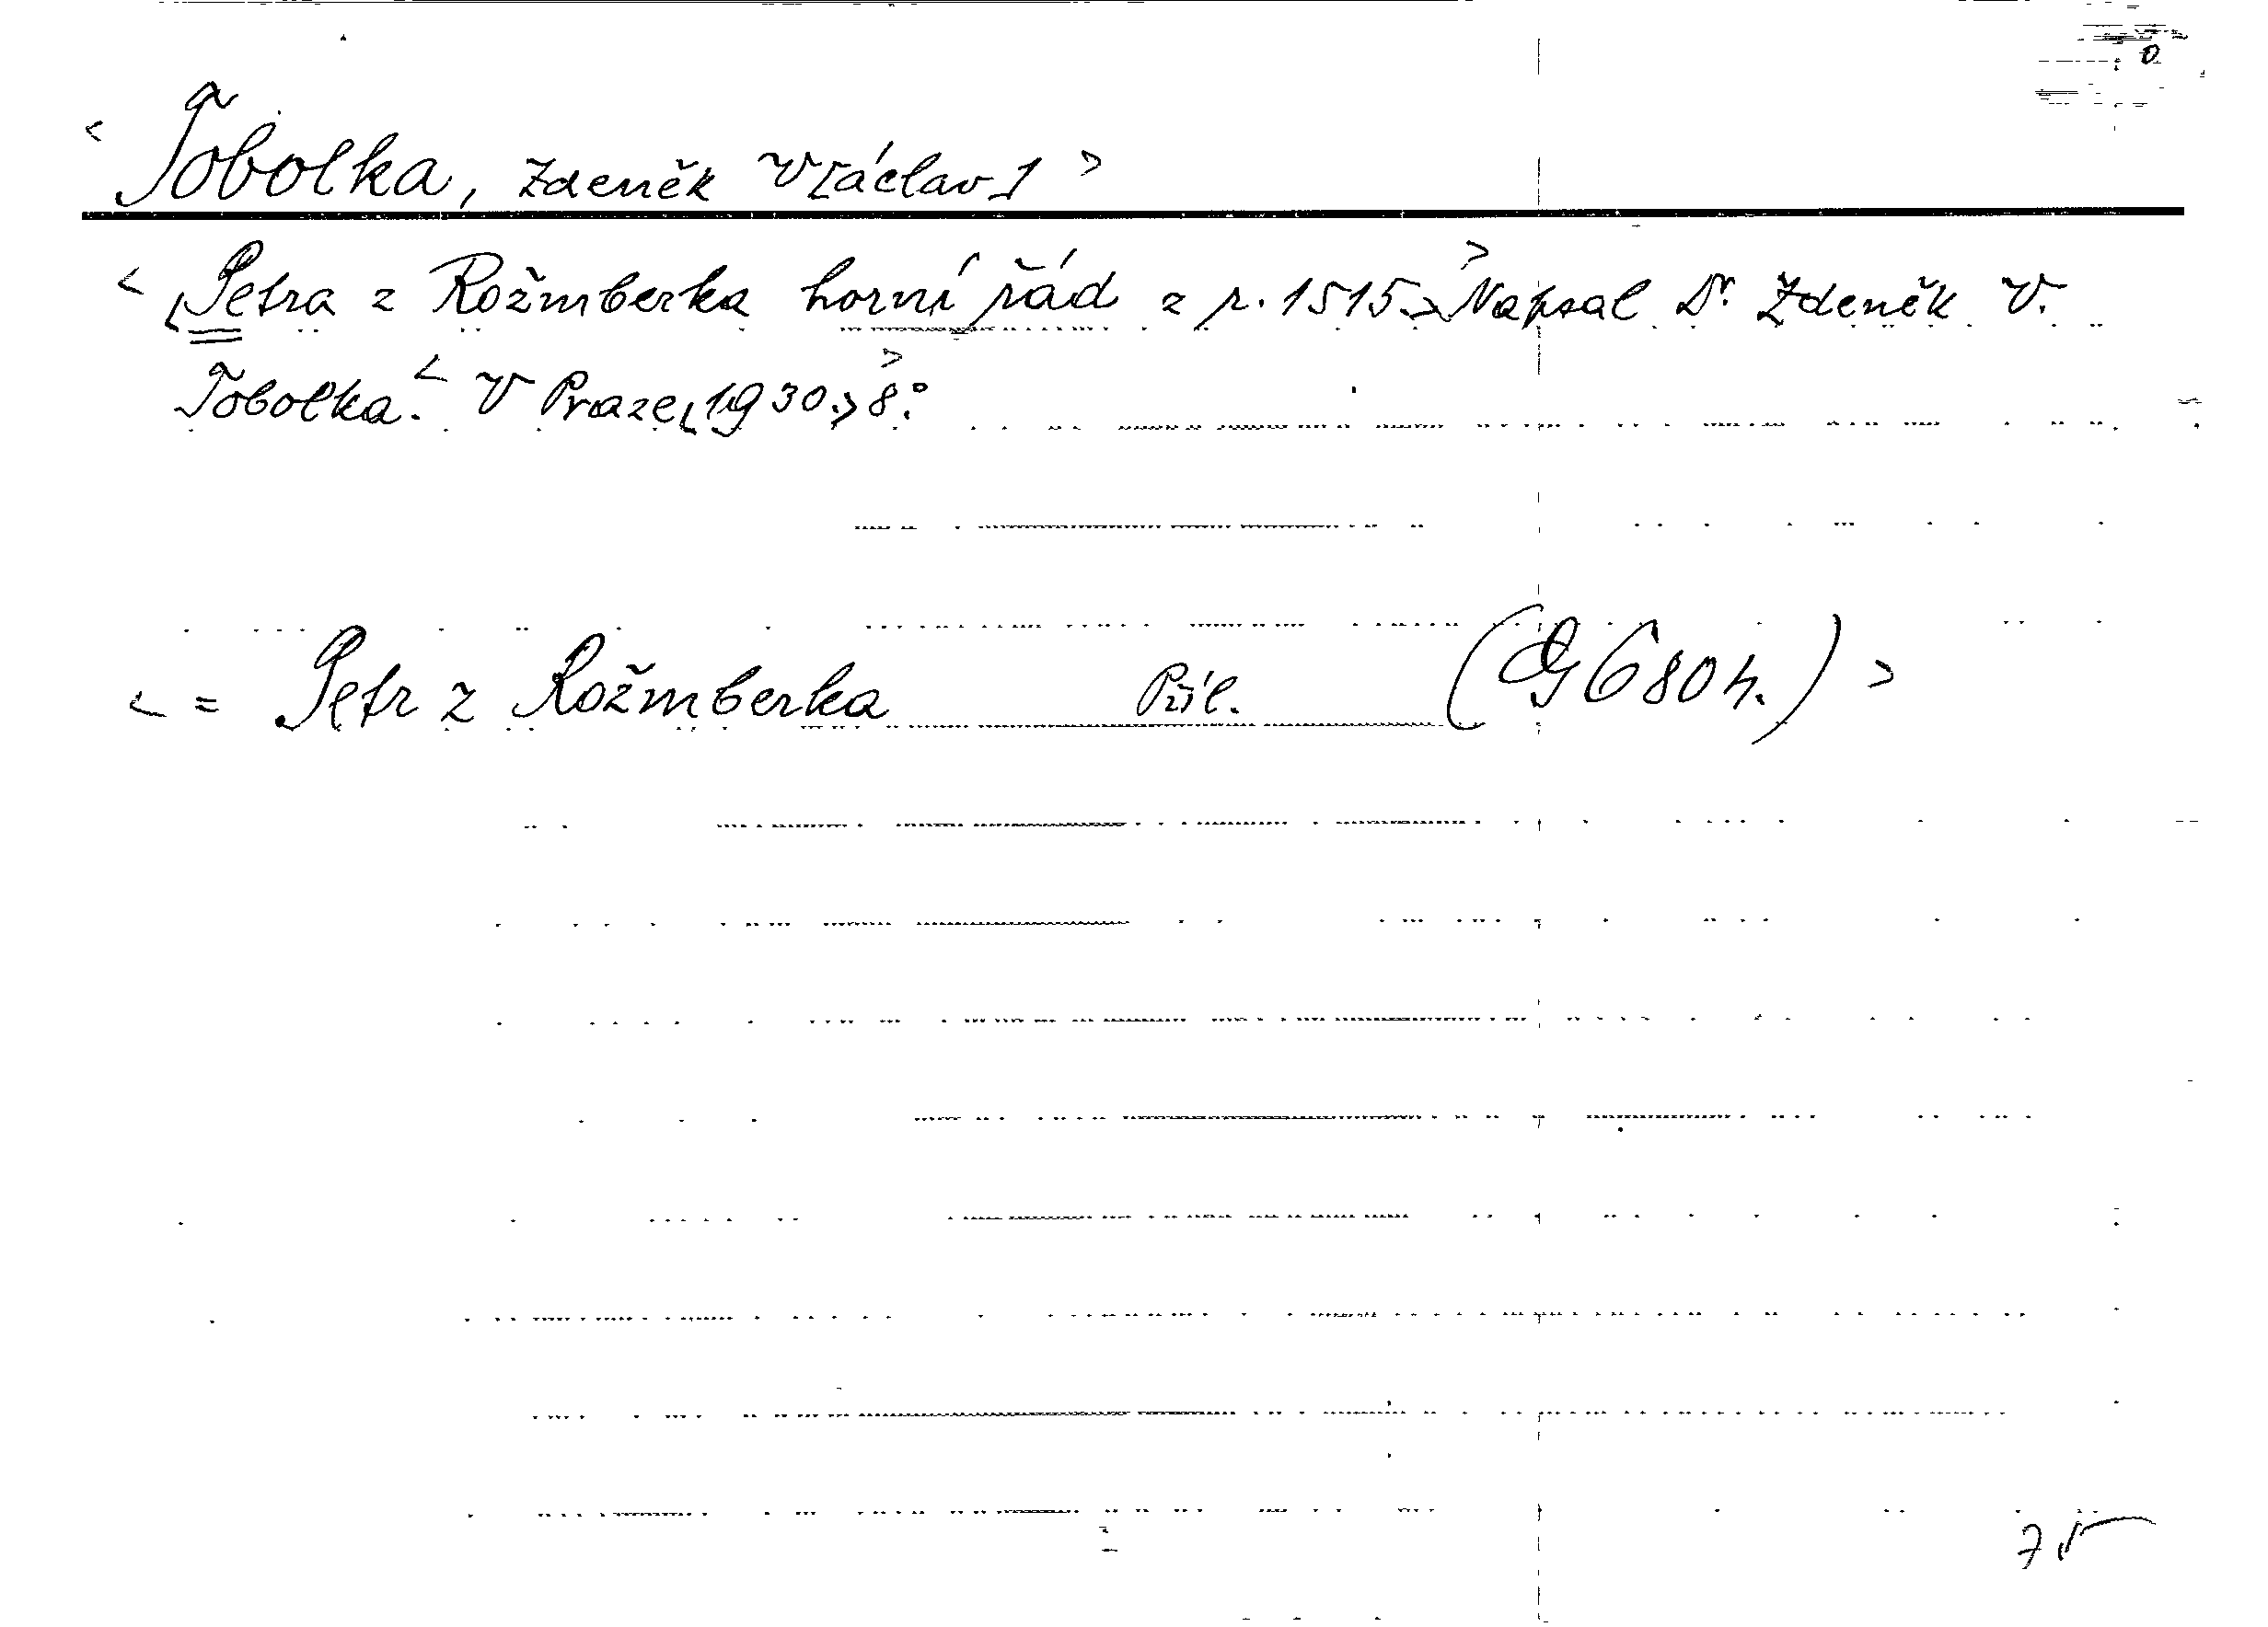 < Tobolka, Zdeněk V[áclav] >
< Petra z Rožmberka horní řád z r. 1515. > Napsal Dr. Zdeněk V.
Tobolka. < V Praze, 1930. > 8°.
< = Petr z Rožmberka Příl. (G 680 h.) >
75